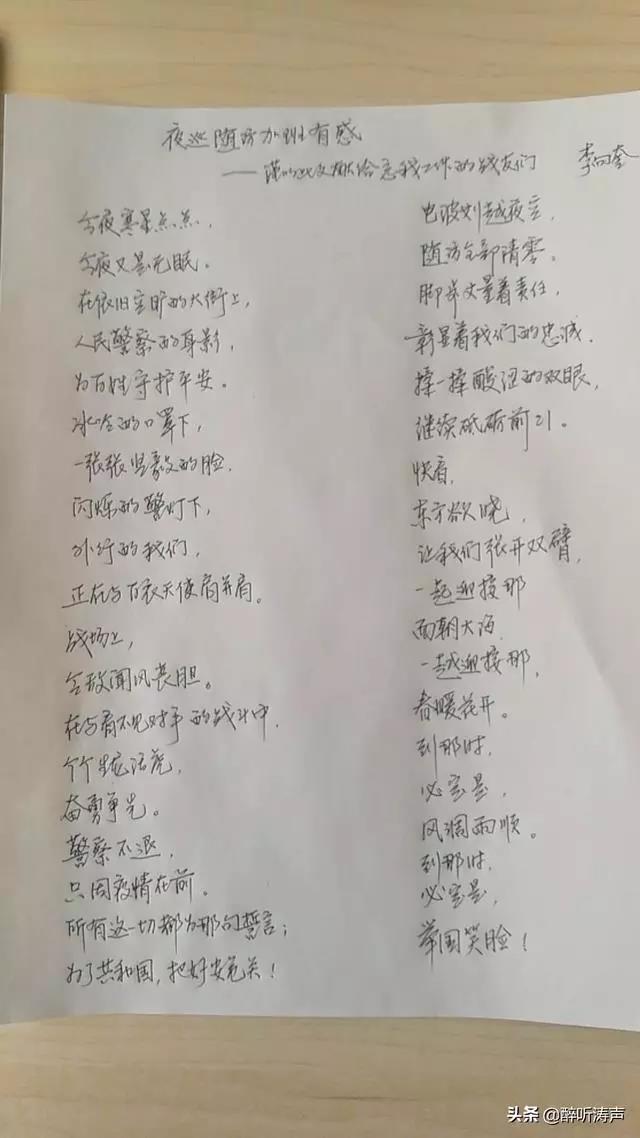 夜巡随访加班有感
——谨以此文献给忘我工作的战友们
李向奎
今夜寒星点点，
今夜又是无眠。
在依旧空旷的大街上，
人民警察的身影，
为百姓守护平安。
冰冷的口罩下，
一张张坚毅的脸。
闪烁的警灯下，
外行的我们，
正在与百衣天使肩并肩。
战场上，
令敌闻风丧胆。
在与看不见对手的战斗中，
个个生龙活虎，
奋勇争先。
警察不退，
只因疫情在前。
所有这一切都为那句誓言；
为了共和国，把好安危关！
电波划越夜空，
随访全部清零。
脚步丈量着责任，
彰显着我们的忠诚。
揉一揉酸涩的双眼，
继续砥砺前行。
快看，
东方欲晓，
让我们张开双臂，
一起迎接那
面朝大海
一起迎接那，
春暖花开。
到那时，
必定是，
风调雨顺。
到那时，
必定是，
举国笑脸！
头条 @醉听涛声